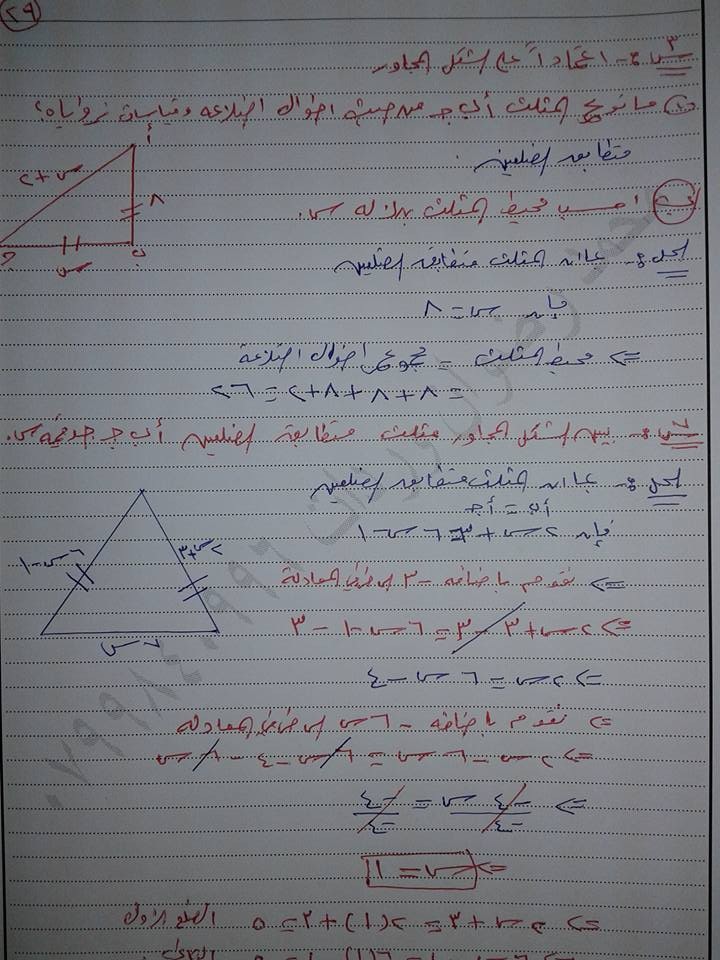 ٢٩
س٣:- اعتماداً على الشكل المجاور
١) ما نوع المثلث أ ب جـ من حيث اطوال اضلاعه وقياسات زواياه؟
متطابق الضلعين.
أ
س+٢
٨
جـ
ب
س
ب) احسب محيط المثلث بدلالة س.
الحل:- بما ان المثلث متطابق الضلعين
فإن س = ٨
<= محيط المثلث = مجموع اطوال اضلاعه
= ٨+٨+٨+٢ = ٢٦
يبين الشكل المجاور مثلث متطابق الضلعين أ ب جـ جد قيمة س.
الحل:- بما ان المثلث متطابق الضلعين
أ ب = أ جـ
فإن ٢س+٣ = ٦س-١
٦س-١
٢س+٣
٧س
<= نقوم باضافة -٣ الى طرفي المعادلة
<= ٢س+٣-٣ = ٦س-١-٣
<= ٢س = ٦س-٤
<= نقوم باضافة -٦س الى طرفي المعادلة
<= ٢س-٦س = ٦س-٤-٦س
<= -٤س = -٤
-٤ -٤
<= س = ١
<= ٢س+٣ = ٢(١)+٣ = ٥ الضلع الاول